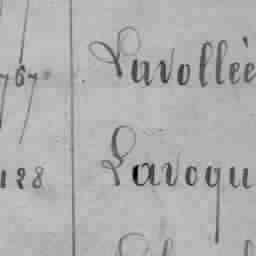 767 Lavollée
128 Lavoqu